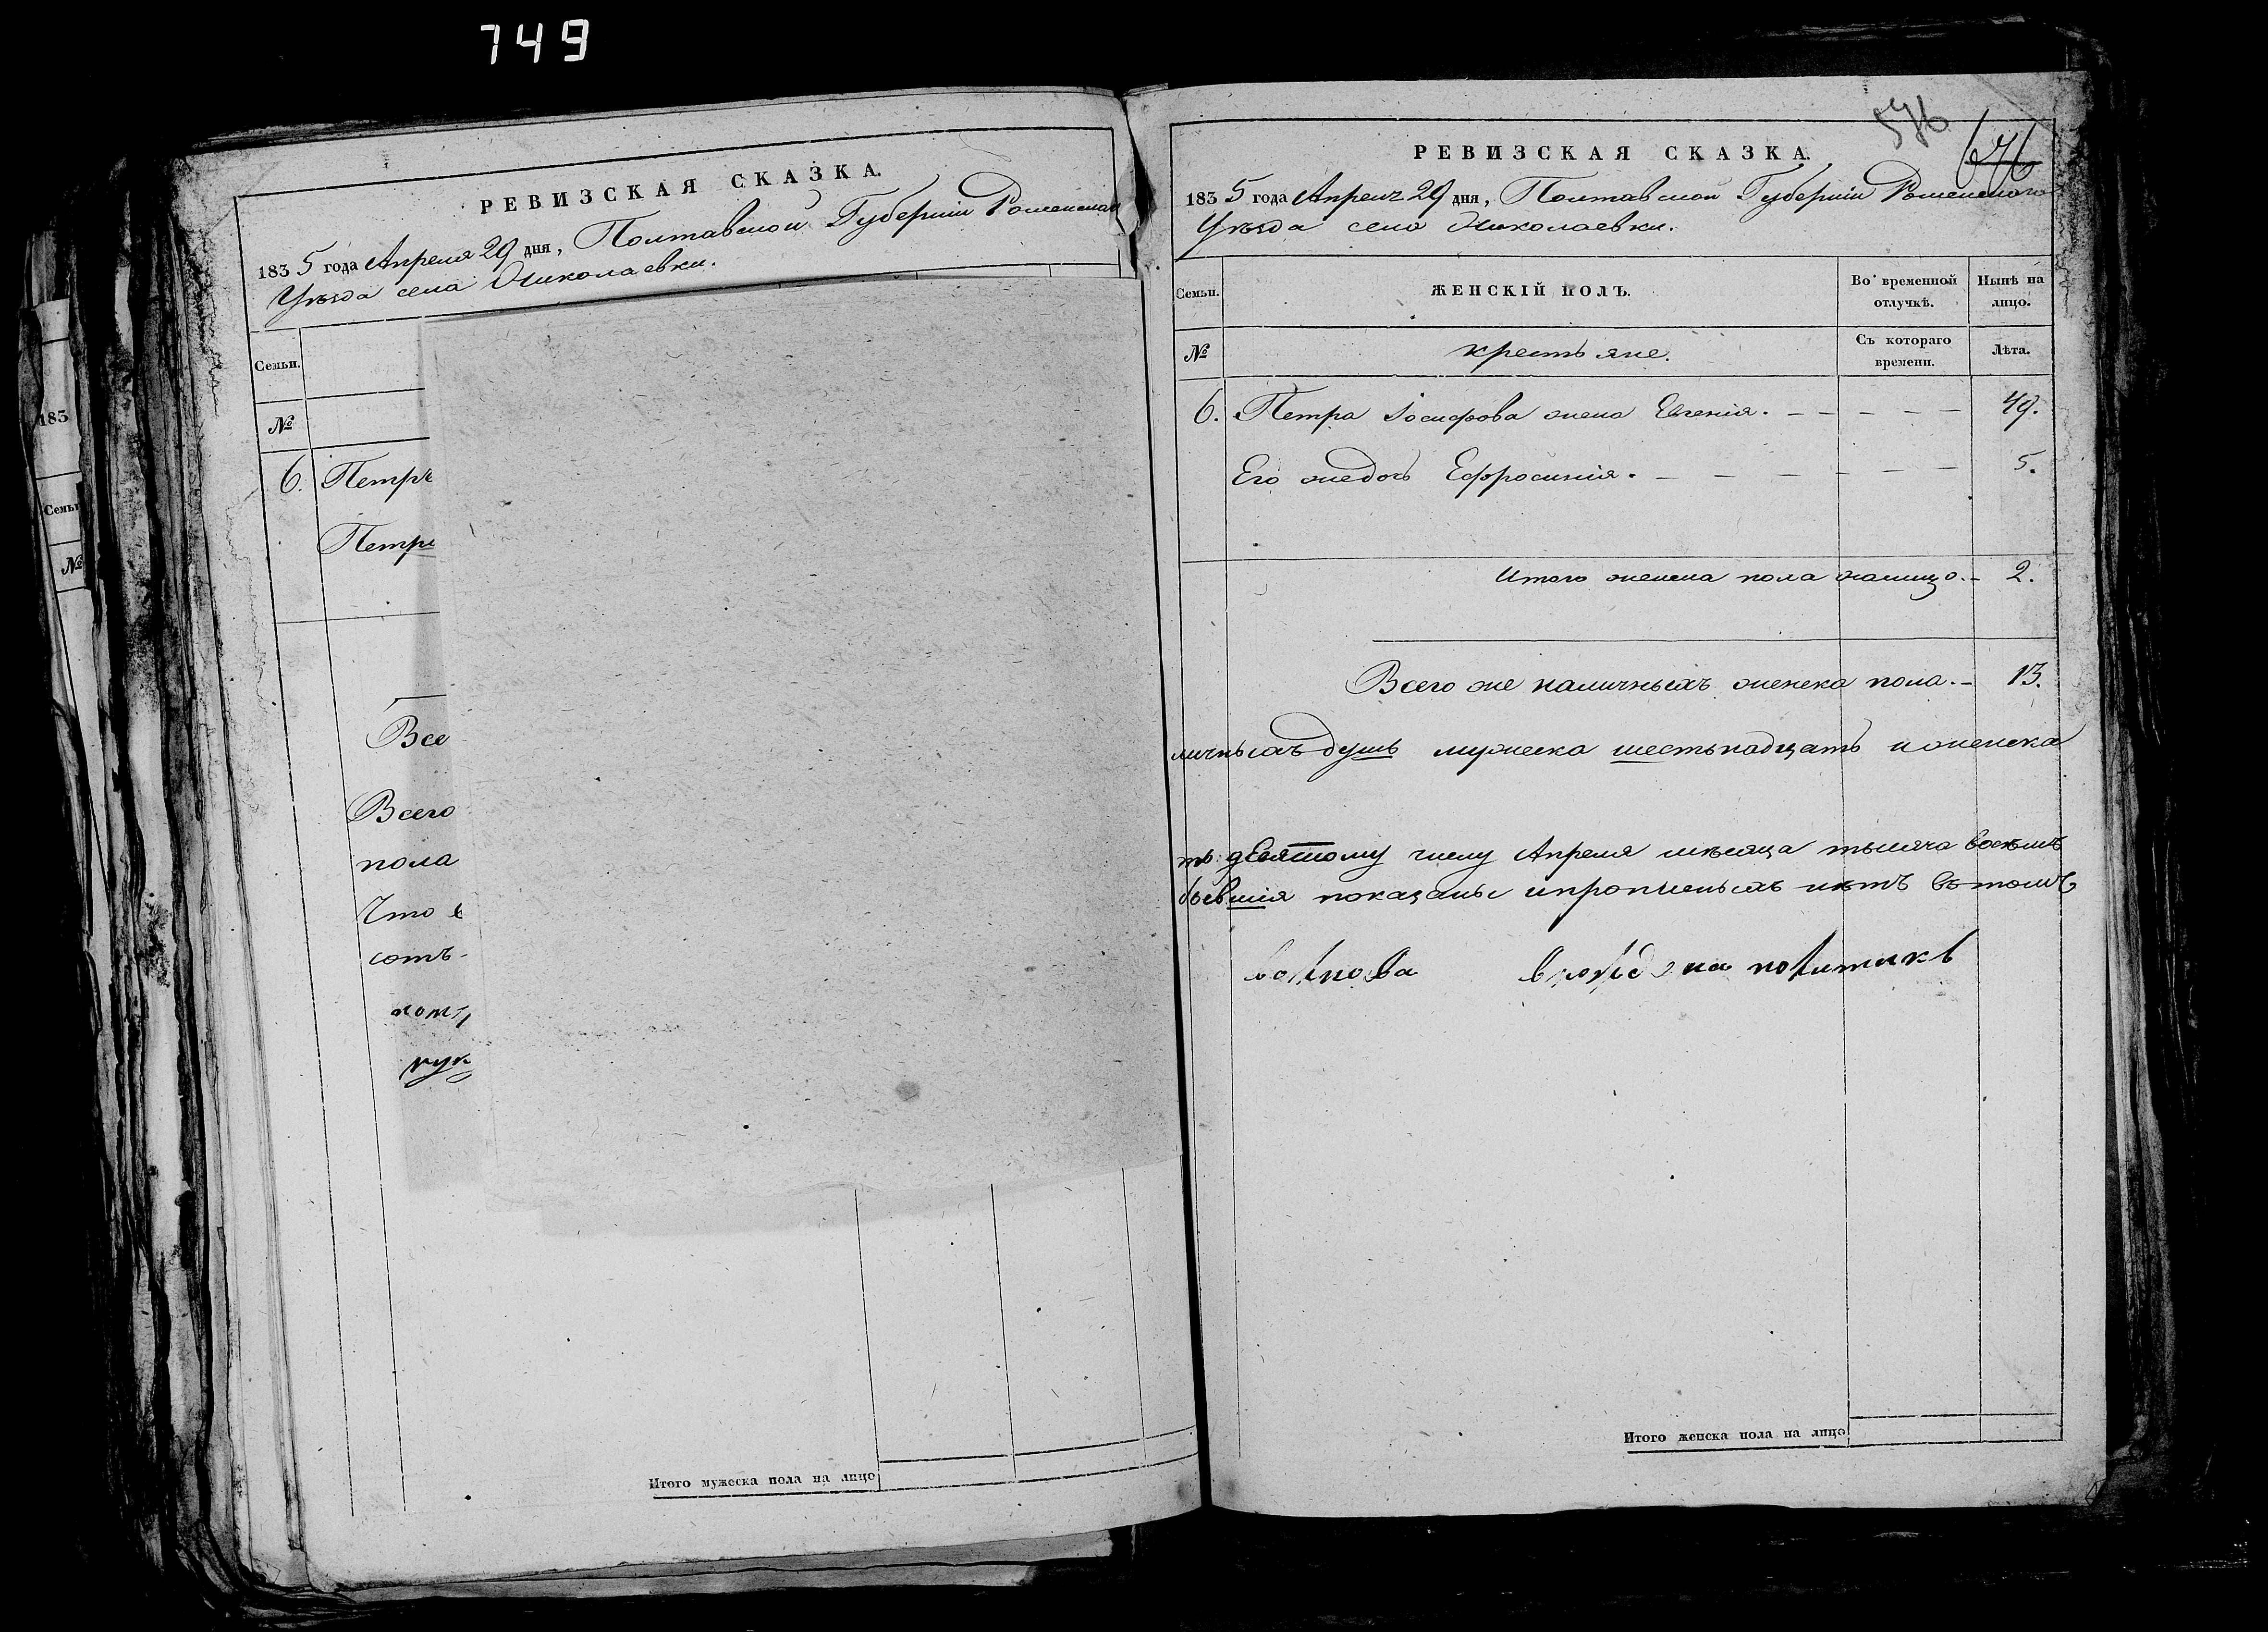 749
183
Семьи
№
РЕВИЗСКАЯ СКАЗКА.
1835 года Апреля 29 дня, Полтавской Губерніи Роменскаго
Уѣзда села Николаевки.
Семьи.
№
6. Петръ
Петра
Все
Всего
пола
Что
сотъ
рук
Итого мужеска пола на лицо
576
676
РЕВИЗСКАЯ СКАЗКА.
1835 года Апреля 29 дня, Полтавской Губерніи Роменскаго
Уѣзда села Николаевки.
Семьи. ЖЕНСКІЙ ПОЛЪ. Во временной отлучкѣ. Нынѣ на лицо.
№ крестьяне. Съ котораго времени. Лѣта.
6. Петра Іосифова жена Евгенія. 49.
Его же дочь Ефросинія. 5.
Итого женска пола налицо. 2.
Всего же наличныхъ женска пола. 13.
личныхъ душъ мужеска шестьнадцать и женска
тъ девятому числу Апреля мѣсяца тысяча восѣмъ
бывшія показаны и прописныхъ нѣтъ въ томъ
Итого женска пола на лицо